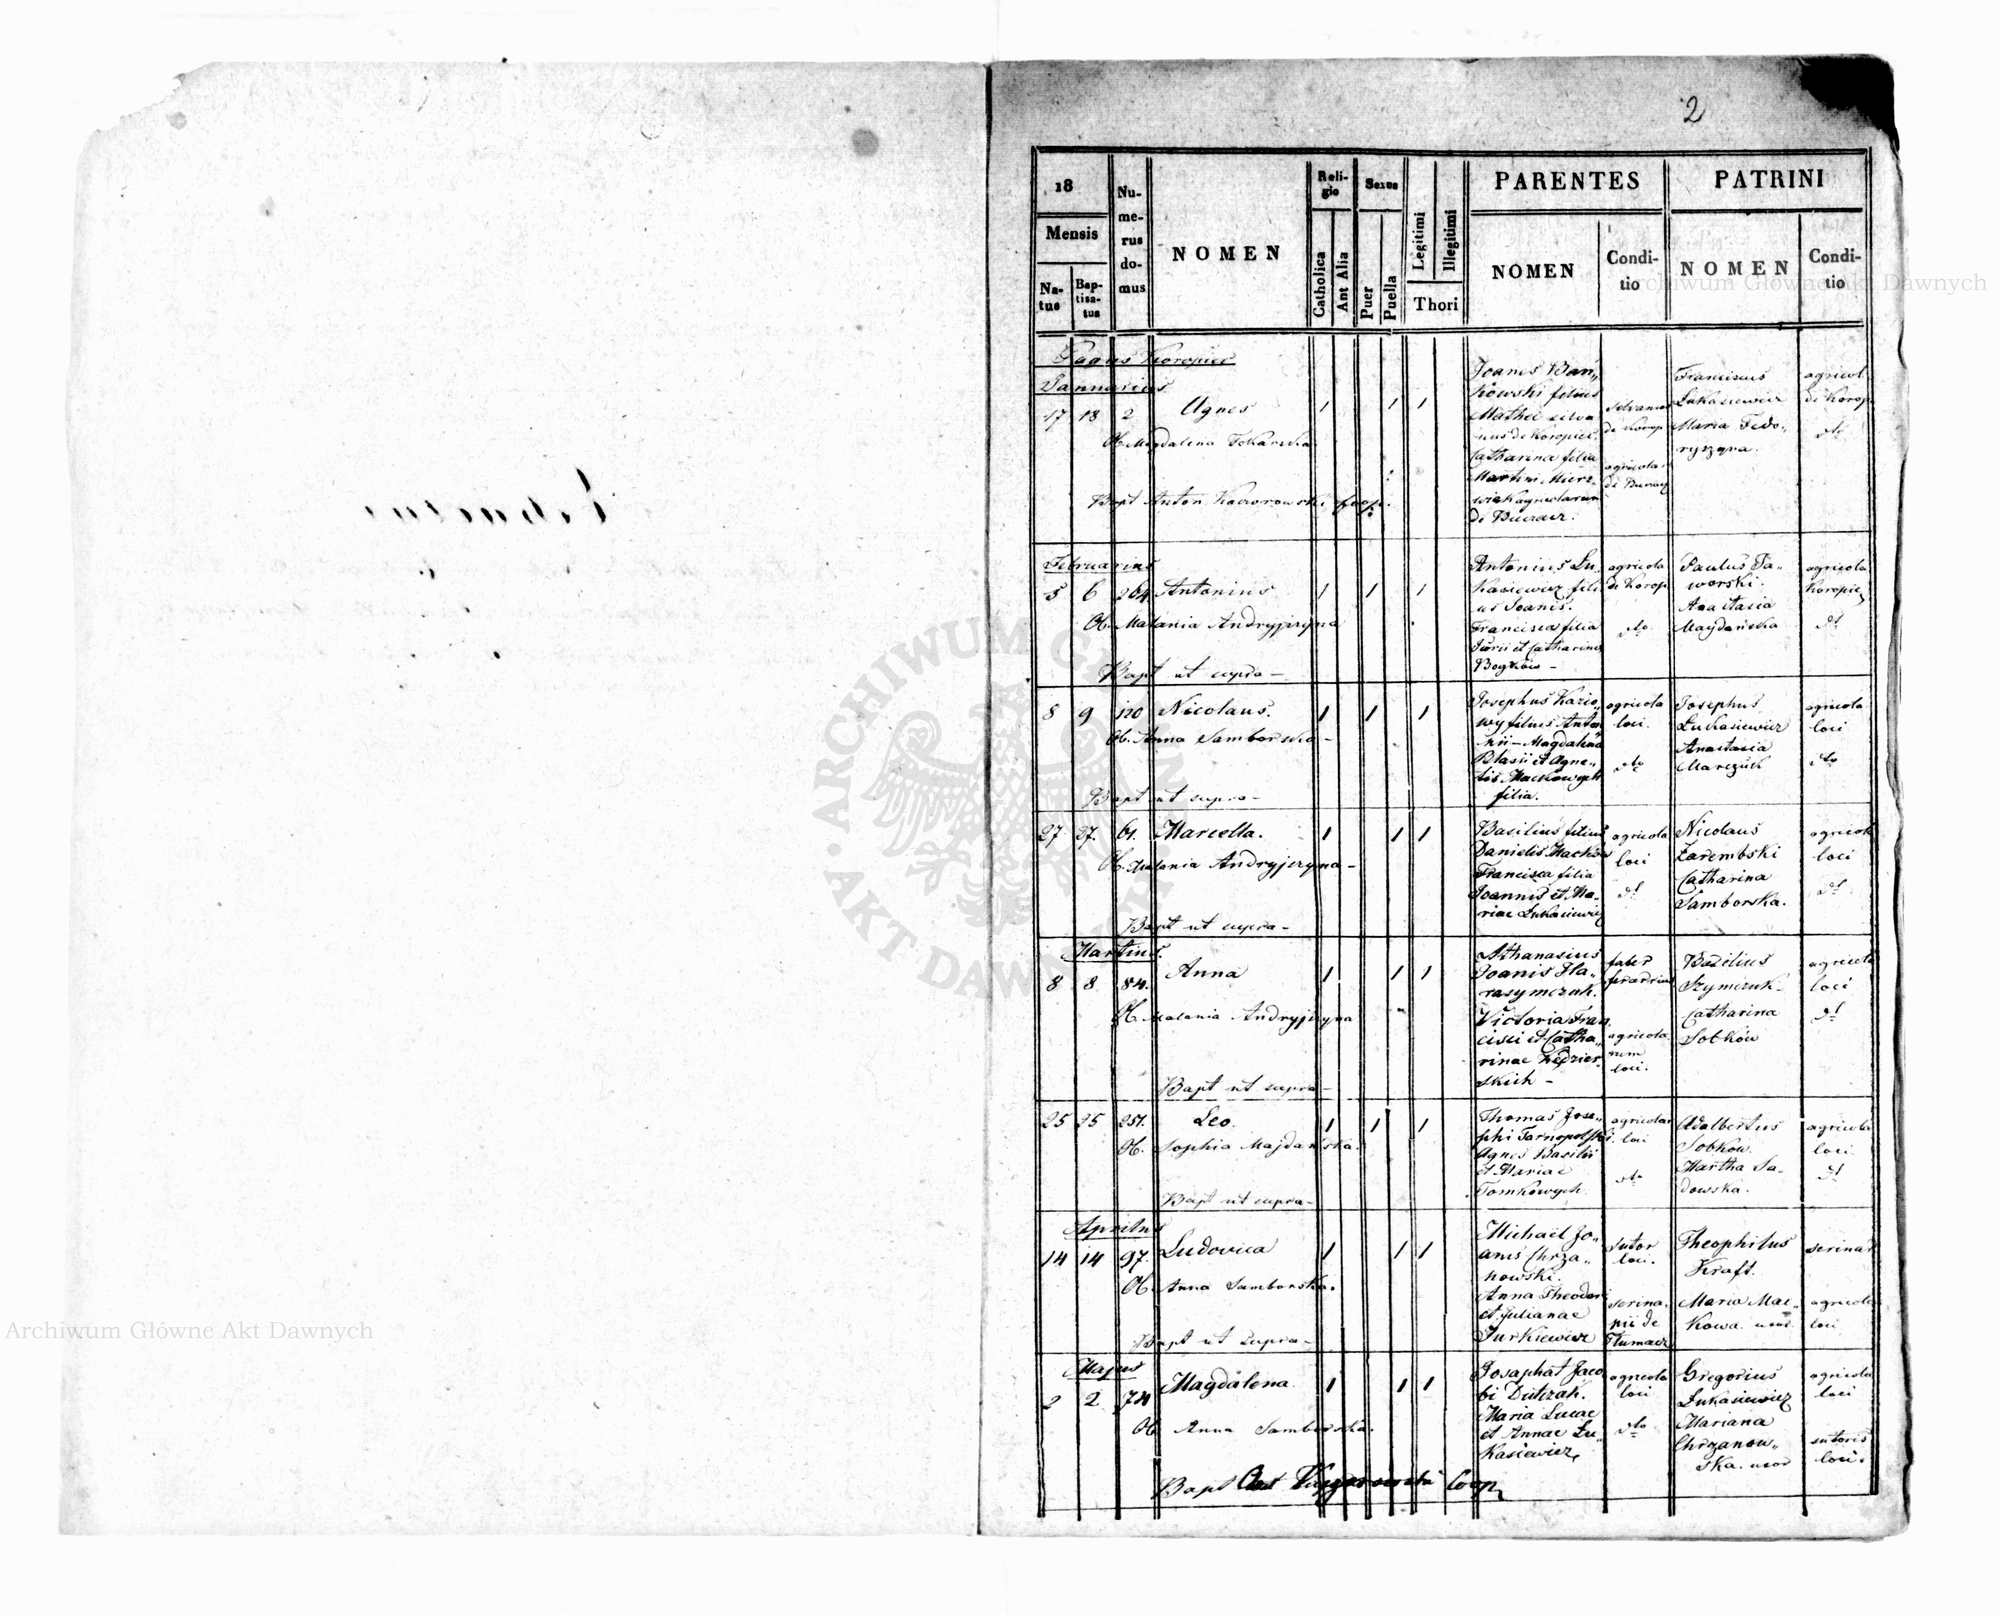 2
18
Mensis
Na-
tus
Bap-
tisa-
tus
Nu-
me-
rus
do-
mus
NOMEN
Reli-
gio
Catholica
Aut Alia
Sexus
Puer
Puella
Legitimi
Illegitimi
Thori
PARENTES
NOMEN
Condi-
tio
PATRINI
NOMEN
Condi-
tio
Pagus Koropiec
Januarius
17 18 2 Agnes / / /
Ob. Magdalena Tokarska
Bapt Anton Kaczorowski Coop.
Joanes Ban„
kowski filius
Mathei silva
nus de Koropiec.
Catharina filia
Martini Mierz„
wiak agricolarum
de Buczacz.
silvanus
de Korop
agricolar
de Buczacz
Franciscus
Łukasiewicz
Maria Fedo„
ryszyna.
agricol.
de Korop.
dto
Februarius
5 6 204 Antonius / / /
Ob. Malania Andryjszyna
Bapt ut supra –
Antonius Łu„
kasiewicz fili
us Joanis.
Francisca filia
Jurii et Catharinae
Boykow –
agricola
de Korop
dto
Paulus Ja„
worski.
Anastasia
Maydańska
agricola
Koropiec
dt
8 9 120 Nicolaus. / / /
Ob. Anna Samborska –
Bapt ut supra –
Josephus Kazio„
wy filius Anto
nii – Magdalena
Blasii et Agne„
tis Mackowych
filia.
agricola
loci.
dto
Josephus
Łukasiewicz
Anastasia
Marczuk
agricola
loci
dto
27 27. 61. Marcella. / / /
Ob. Malania Andryjszyna –
Bapt ut supra –
Basilius filius
Danielis Mackow
Francisca filia
Joannis et Ma„
riae Łukasiewicz
agricola
loci
dt
Nicolaus
Zarembski
Catharina
Samborska.
agricol
loci
dt
Martius.
8 8 84. Anna / / /
Ob. Malania Andryjszyna
Bapt ut supra –
Athanasius
Joanis Ha„
rasymczuk.
Victoria Fran
cisci et Catha„
rinae Kędzier„
skich –
faber
ferarrius
agricola
rum
loci.
Basilius
Szymczuk –
Catharina
Sobków
agricola
loci
dt
25 25 251. Leo. / / /
Ob. Sophia Majdańska.
Bapt ut supra –
Thomas Jose„
phi Tarnopolski.
Agnes Basilii
et Mariae
Tomkowych.
agricolar
loci
dto
Adalbertus
Sobkow.
Martha Sa„
dowska.
agricola
loci.
dt
Aprilus
14 14 97. Ludovica / / /
Ob. Anna Samborska.
Bapt ut supra –
Michael Jo„
anis Chrza„
nowski.
Anna Theodori
et Julianae
Jurkiewicz
sutor
loci.
serina„
rii de
Tłumacz
Theophilus
Kraft.
Maria Mac„
kowa uxor
serinar
agricola
loci
Majus
2 2 74 Magdalena. / / /
Ob. Anna Samborska.
Bapt Ant Kaczorowski Coop
Josaphat Jaco
bi Dutczak.
Maria Lucae
et Annae Łu„
kasiewicz,
agricola
loci
dto
Gregorius
Łukasiewicz
Mariana
Chrzanow„
ska. uxor
agricola
loci
sutoris
loci.
ARCHIWUM GŁÓWNE AKT DAWNYCH
Archiwum Główne Akt Dawnych
Archiwum Główne Akt Dawnych